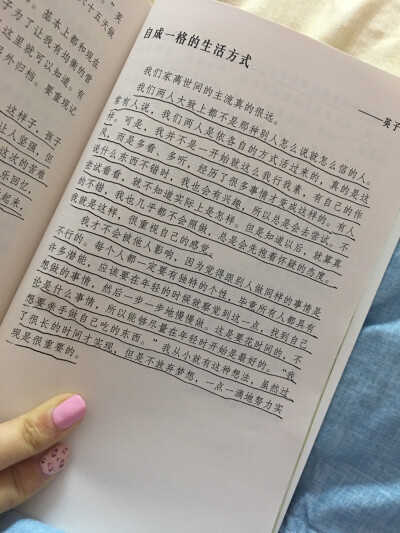 英
五天做
基本上都和现在
子为了让我有均衡的营
这里就可以知道，有
另外归档。要重现记
这样子，孩子
让人坚强，但
这次的苦痛
乐回忆，
起来，
自成一格的生活方式
——英子
我们家离世间的主流真的很远。
我们两人大致上都不是那种别人怎么说就怎么信的人。
常有人说，我们两人是依各自的方式活过来的，真的是这
样。可是，我并不是一开始就这么我行我素，有自己的作
风，而是多看、多听，经历了很多事情才变成这样的。有人
说什么东西不错时，我也会有兴趣，所以总是会去尝试。不
尝试看看，就不知道实际上是怎样。但是知道以后，就算真
的不错，我也几乎都不会照做，总是会先抱着怀疑的态度。
我就是这样，很重视自己的感觉。
我才不会被他人影响，因为觉得跟别人做同样的事情是
不行的。每个人都一定要有独特的个性，毕竟所有人都具有
许多潜能，应该要在年轻的时候就察觉到这一点，找到自己
想做的事情，然后一步一步地慢慢做。这是要花时间的，不
论是什么事情，所以能够尽量在年轻时开始是最好的。“我
想要亲手做自己吃的东西。”我从小就有这种想法，虽然过
了很长的时间才实现，但是不放弃梦想，一点一滴地努力实
现是很重要的。